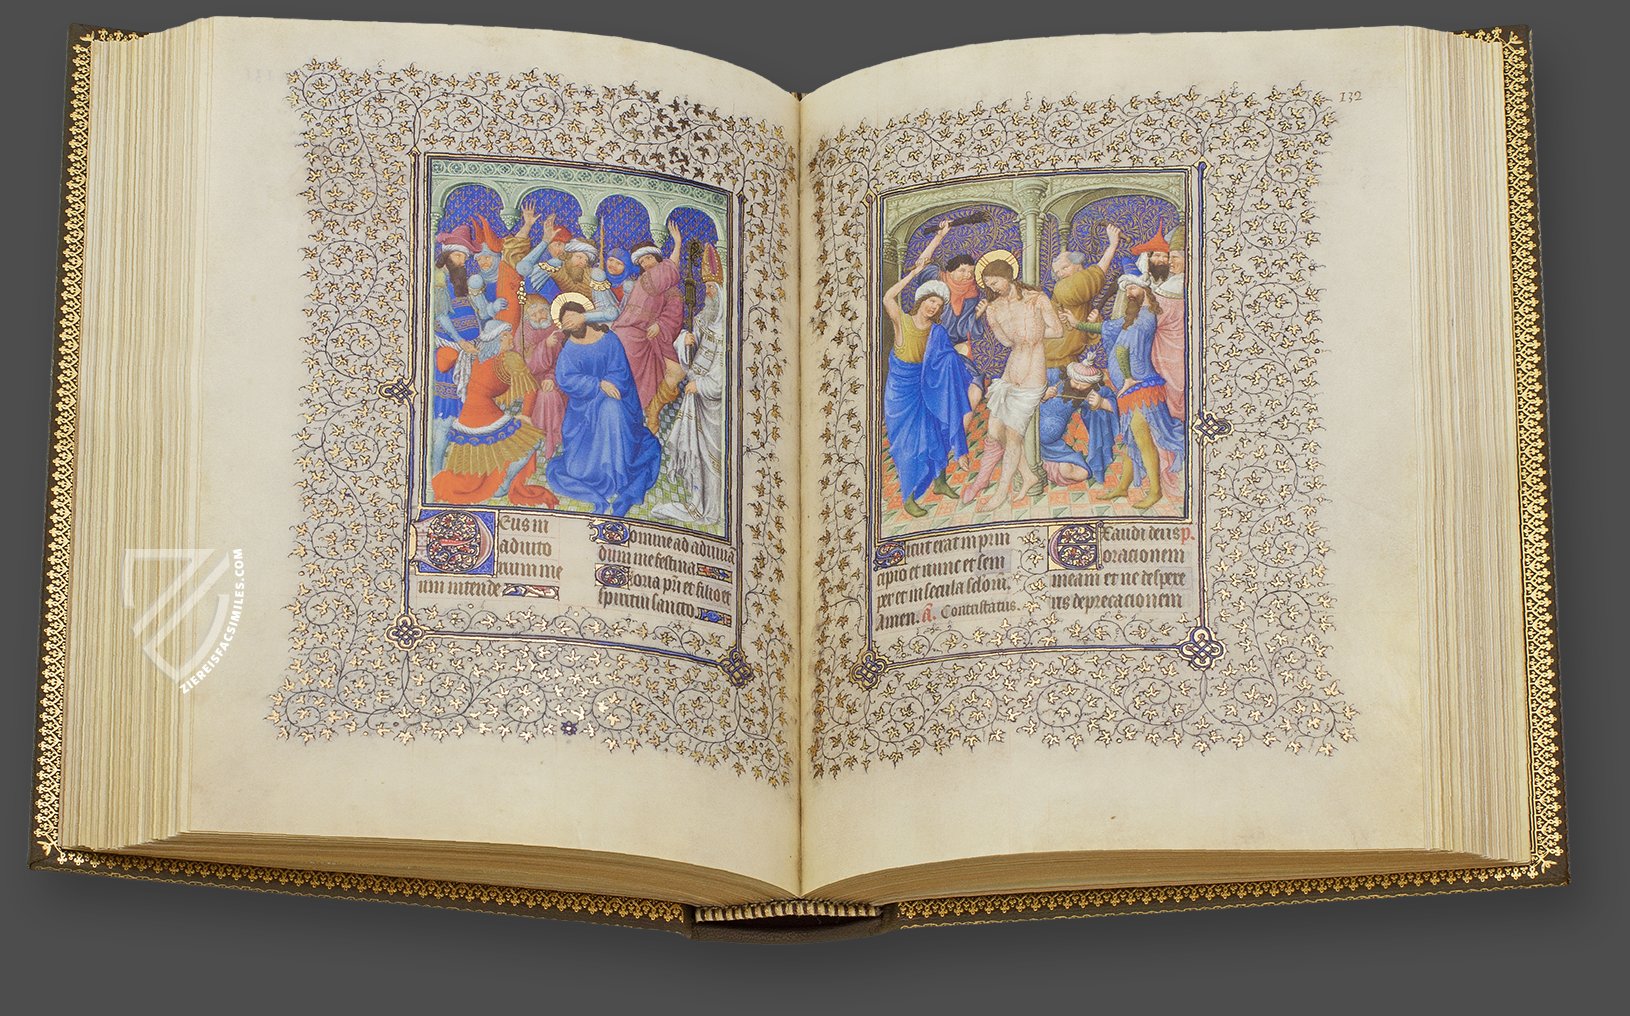 Deus in
adiuto
rium me
um intende
Domine ad adiuva
dum me festina
Gloria pri et filio et
spiritui sancto
132
Sicut erat in prin
cipio et nunc et sem
per et in secula seculorum
Amen. A. Contristatus.
Exaudi deus p.
orationem
meam et ne despexe
ris deprecationem
ZIEREISFACSIMILES.COM